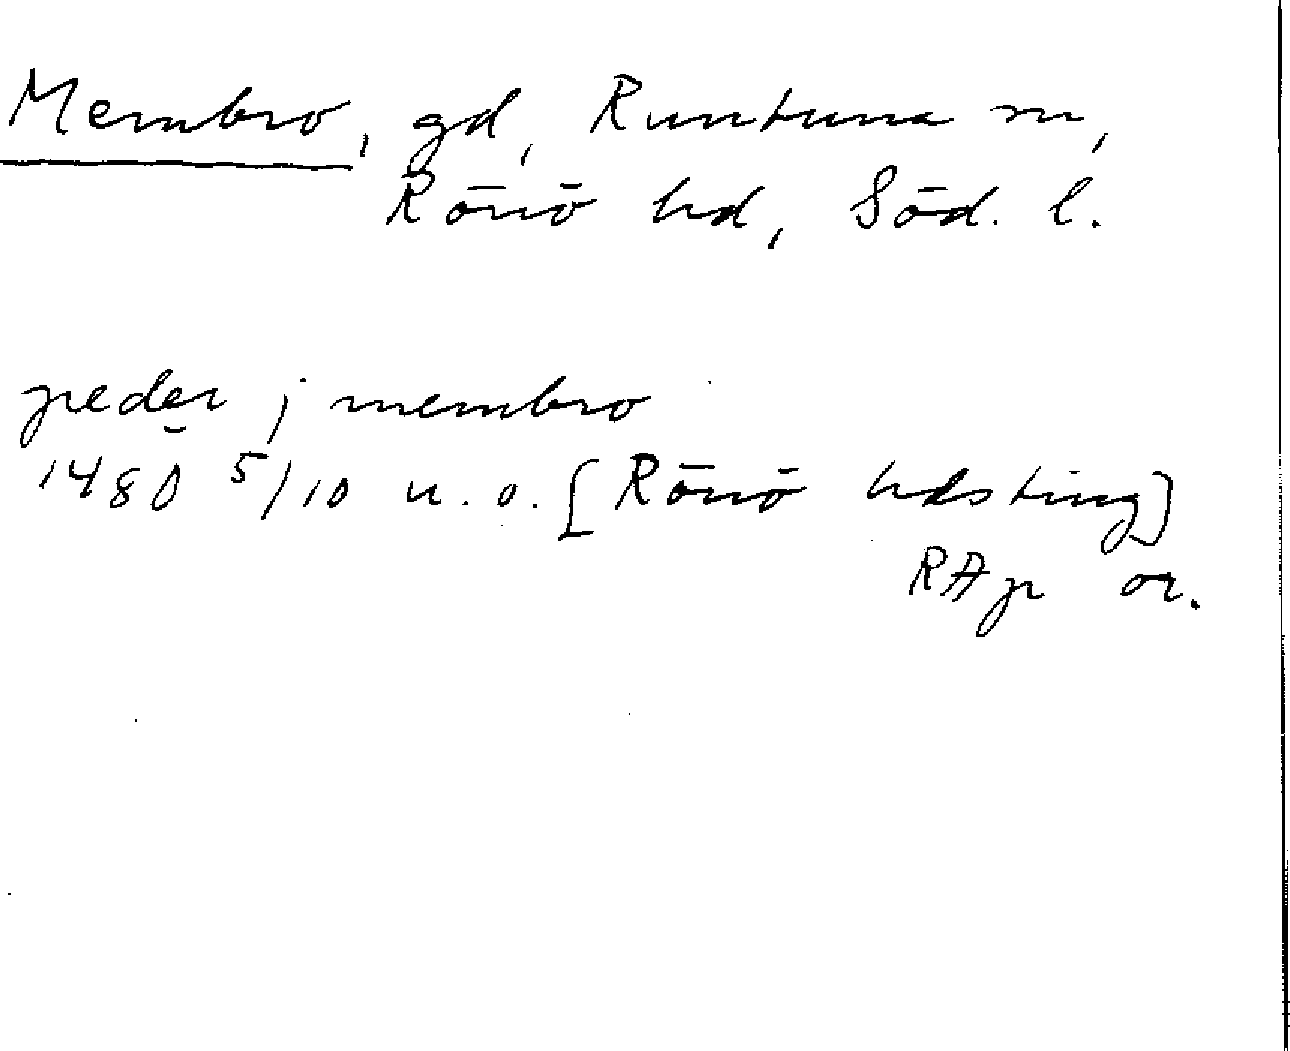 Membro, gd, Runtuna sn,
Rönö hd, Söd. l.
peder j membro
1480 5/10 u.o. [Rönö hdsting]
RAp or.